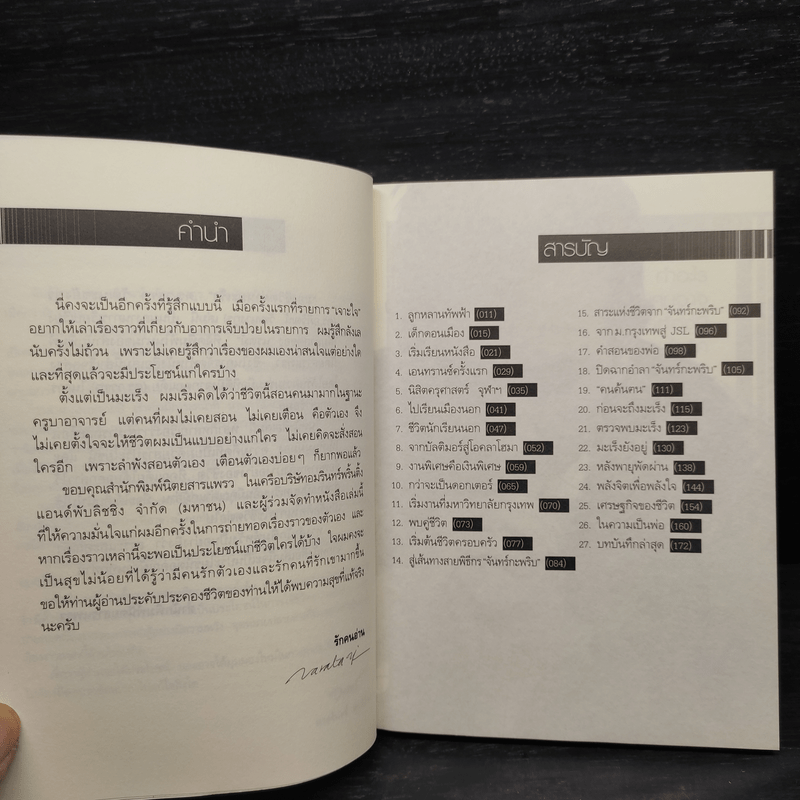 คำนำ
นี่คงจะเป็นอีกครั้งที่รู้สึกแบบนี้ เมื่อครั้งแรกที่รายการ "เจาะใจ"
อยากให้เล่าเรื่องราวที่เกี่ยวกับอาการเจ็บป่วยในรายการ ผมรู้สึกลังเล
นับครั้งไม่ถ้วน เพราะไม่เคยรู้สึกว่าเรื่องของผมเองน่าสนใจแต่อย่างใด
และที่สุดแล้วจะมีประโยชน์แก่ใครบ้าง
ตั้งแต่เป็นมะเร็ง ผมเริ่มคิดได้ว่าชีวิตนี้สอนคนมามากในฐานะ
ครูบาอาจารย์ แต่คนที่ผมไม่เคยสอน ไม่เคยเตือน คือตัวเอง จึง
ไม่เคยตั้งใจจะให้ชีวิตผมเป็นแบบอย่างแก่ใคร ไม่เคยคิดจะสั่งสอน
ใครอีก เพราะลำพังสอนตัวเอง เตือนตัวเองบ่อยๆ ก็ยากพอแล้ว
ขอบคุณสำนักพิมพ์นิตยสารแพรว ในเครือบริษัทอมรินทร์พริ้นติ้ง
แอนด์พับลิชชิ่ง จำกัด (มหาชน) และผู้ร่วมจัดทำหนังสือเล่มนี้
ที่ให้ความมั่นใจแก่ผมอีกครั้งในการถ่ายทอดเรื่องราวของตัวเอง และ
หากเรื่องราวเหล่านี้จะพอเป็นประโยชน์แก่ชีวิตใครได้บ้าง ใจผมคงจะ
เป็นสุขไม่น้อยที่ได้รู้ว่ามีคนรักตัวเองและรักคนที่รักเขามากขึ้น
ขอให้ท่านผู้อ่านประคับประคองชีวิตของท่านให้ได้พบความสุขที่แท้จริง
นะครับ
รักคนอ่าน
สารบัญ
1. ลูกหลานทัพฟ้า (011)
2. เด็กดอนเมือง (015)
3. เริ่มเรียนหนังสือ (021)
4. เอนทรานซ์ครั้งแรก (029)
5. นิสิตครุศาสตร์ จุฬาฯ (035)
6. ไปเรียนเมืองนอก (041)
7. ชีวิตนักเรียนนอก (047)
8. จากบัลติมอร์สู่โอคลาโฮมา (052)
9. งานพิเศษคือเงินพิเศษ (059)
10. กว่าจะเป็นดอกเตอร์ (065)
11. เริ่มงานที่มหาวิทยาลัยกรุงเทพ (070)
12. พบคู่ชีวิต (073)
13. เริ่มต้นชีวิตครอบครัว (077)
14. สู่เส้นทางสายพิธีกร "จันทร์กะพริบ" (084)
15. สาระแห่งชีวิตจาก "จันทร์กะพริบ" (092)
16. จาก ม.กรุงเทพสู่ JSL (096)
17. คำสอนของพ่อ (098)
18. ปิดฉากอำลา "จันทร์กะพริบ" (105)
19. "คนค้นคน" (111)
20. ก่อนจะถึงมะเร็ง (115)
21. ตรวจพบมะเร็ง (123)
22. มะเร็งยังอยู่ (130)
23. หลังพายุพัดผ่าน (138)
24. พลังจิตเพื่อพลังใจ (144)
25. เศรษฐกิจของชีวิต (154)
26. ในความเป็นพ่อ (160)
27. บทบันทึกล่าสุด (172)